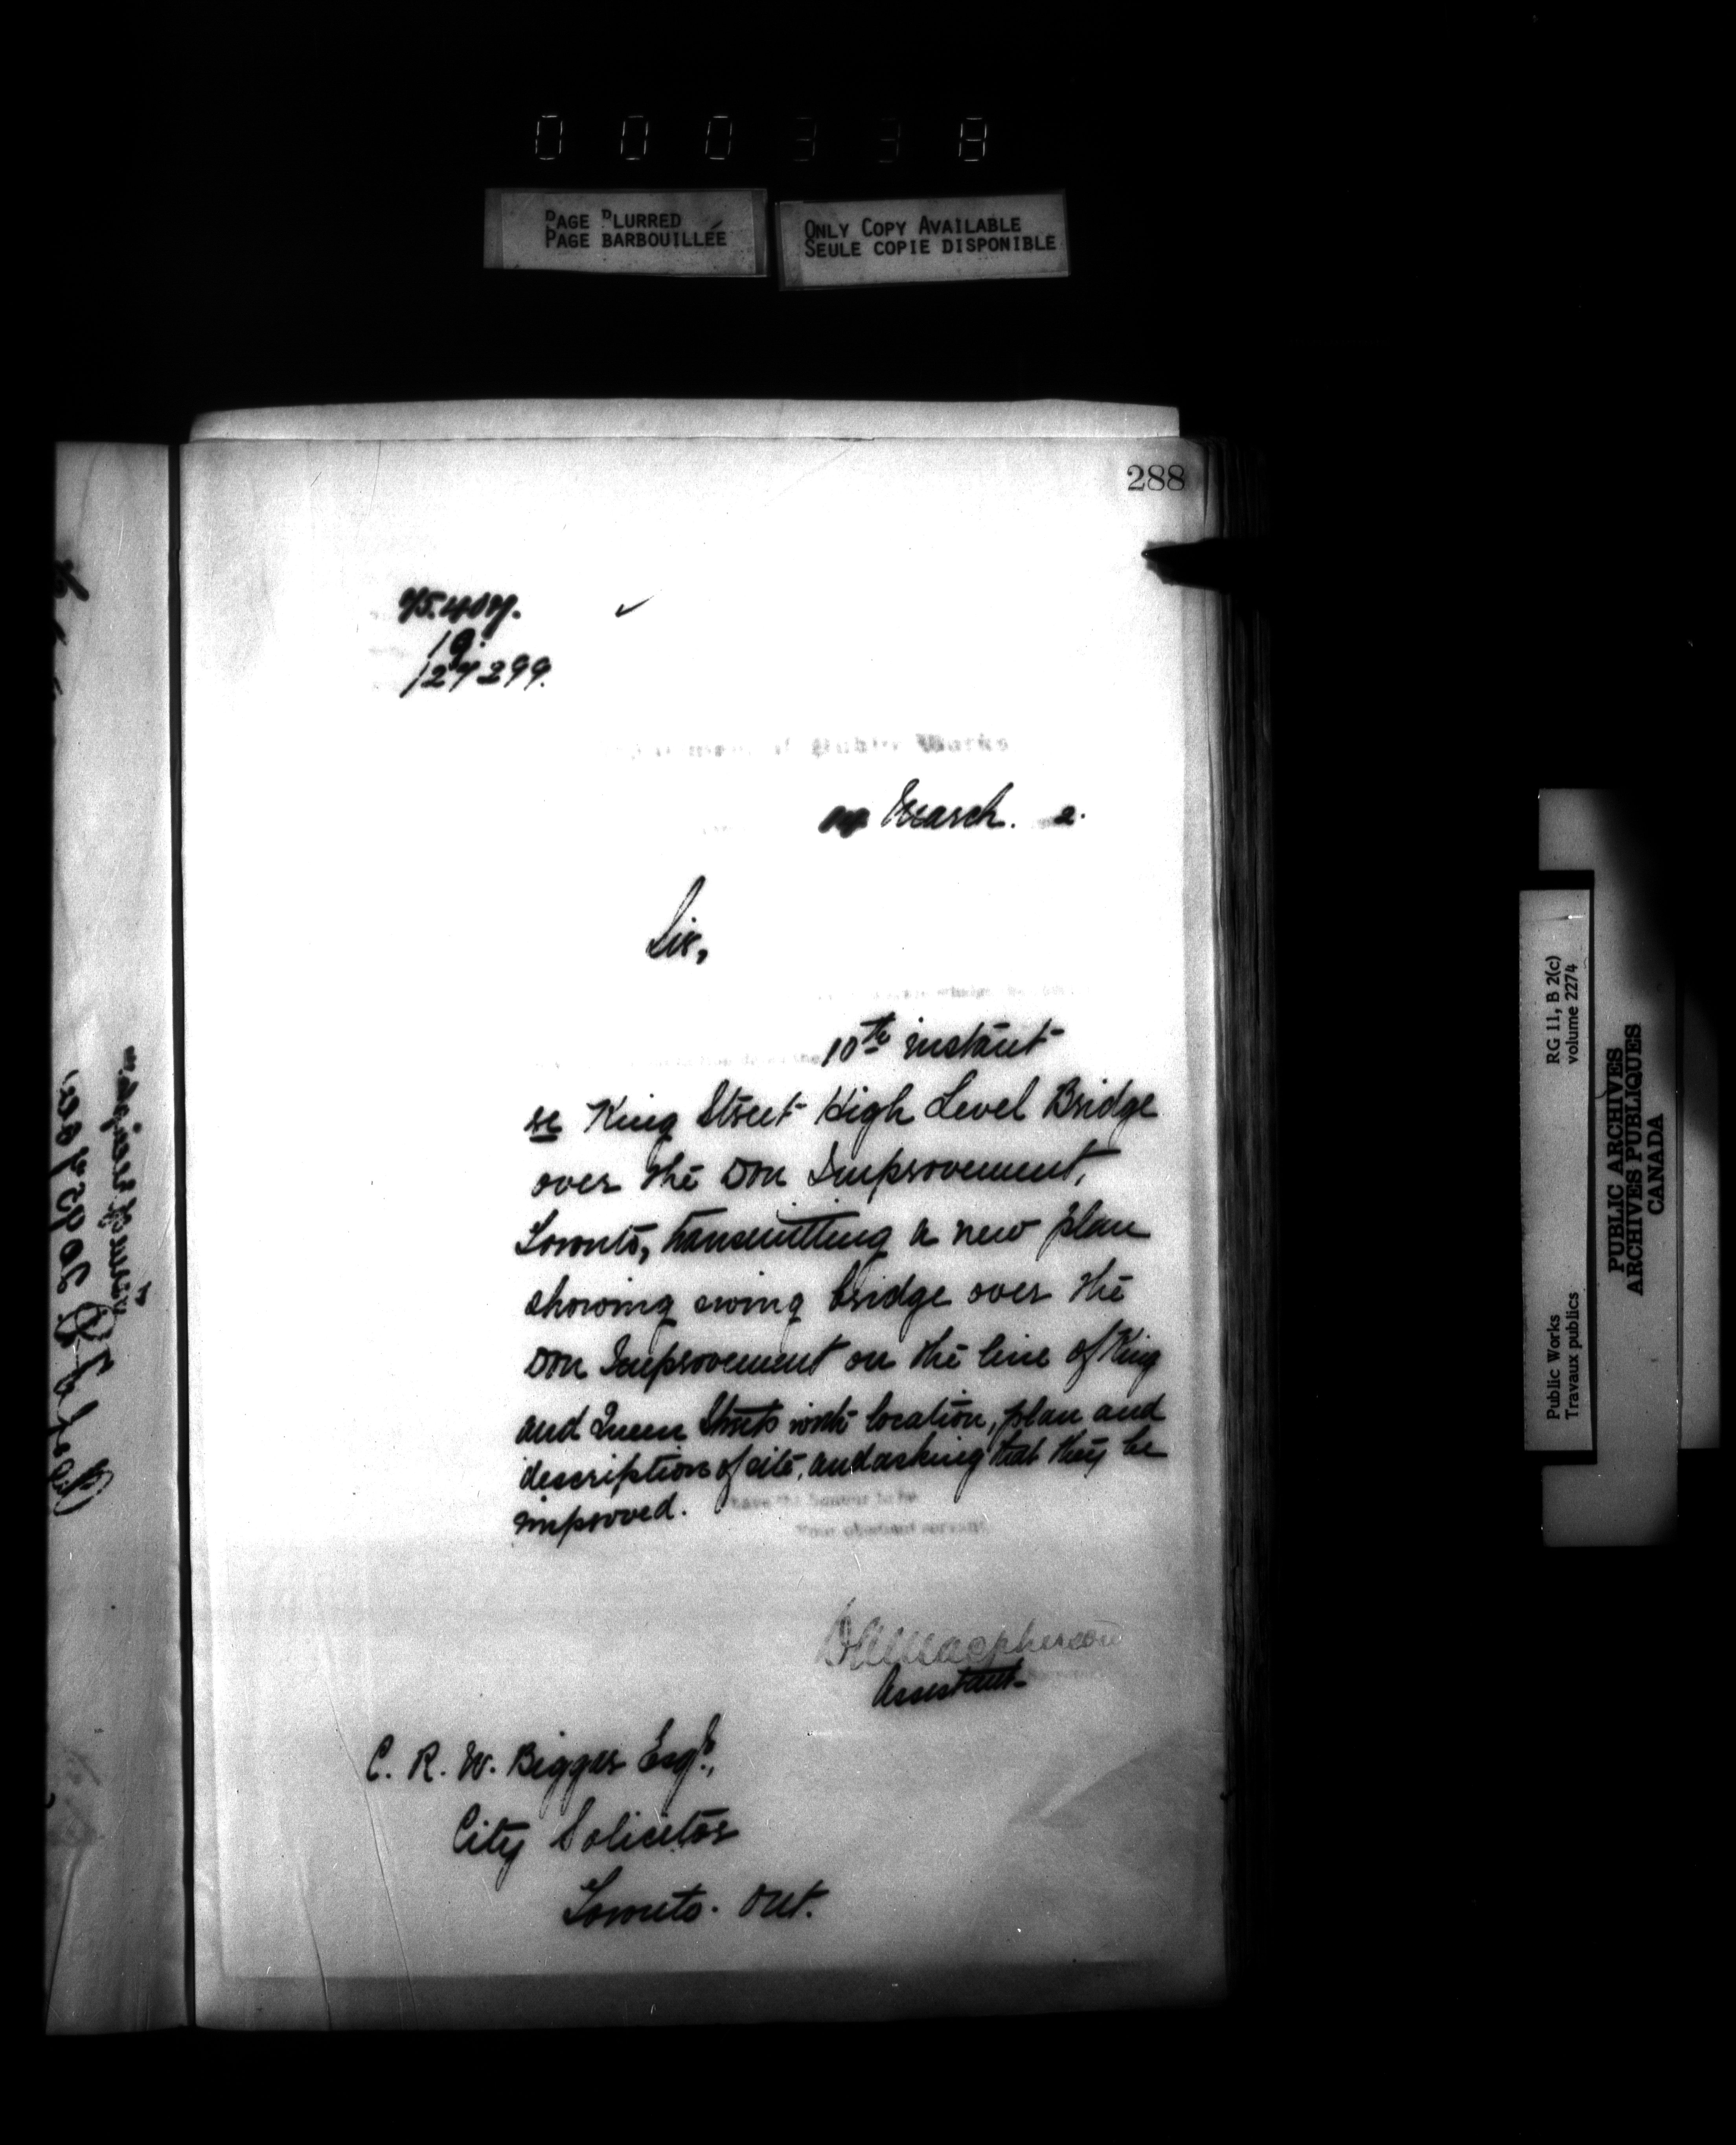 000338
PAGE BLURRED
PAGE BARBOUILLÉE
ONLY COPY AVAILABLE
SEULE COPIE DISPONIBLE
288
75.407.
19.
127299.
of Public Works
March. 2.
Sir,
10th instant
re King Street High Level Bridge
over the Don Improvement,
Toronto, transmitting a new plan
showing swing bridge over the
Don Improvement on the line of King
and Queen Streets with location, plan and
description of site, and asking that they be
improved.
have the honour to be
Your obedient servant
DA Macpherson
Assistant
C. R. W. Biggar Esqr.,
City Solicitor
Toronto. Ont.
RG 11, B 2(c)
volume 2274
Public Works
Travaux publics
PUBLIC ARCHIVES
ARCHIVES PUBLIQUES
CANADA